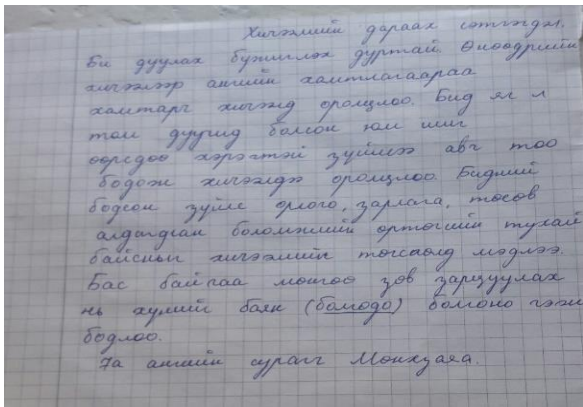 Хичээлийн дараах сэтгэгдэл.
Би дуулах бүжиглэх дуртай. Өнөөдрийн
хичээлээр ангийн хамтлагаараа
хамтарч хичээлд оролцлоо. Бид яг л
том дуучид болсон юм шиг
өөрсдөө хэрэгтэй зүйлээ авч тоо
бодож хичээлдээ оролцлоо. Бидний
бодсон зүйл орлого, зарлага, төсөв
алдагдсан боломжийн өртөгийн тухай
байсныг хичээлийн төгсгөлд мэдлээ.
Бас байгаа мөнгөө зөв зарцуулах
нь хүнийг баян (болгодо) болгоно гэж
бодлоо.
7а ангийн сурагч Мөнхзаяа.